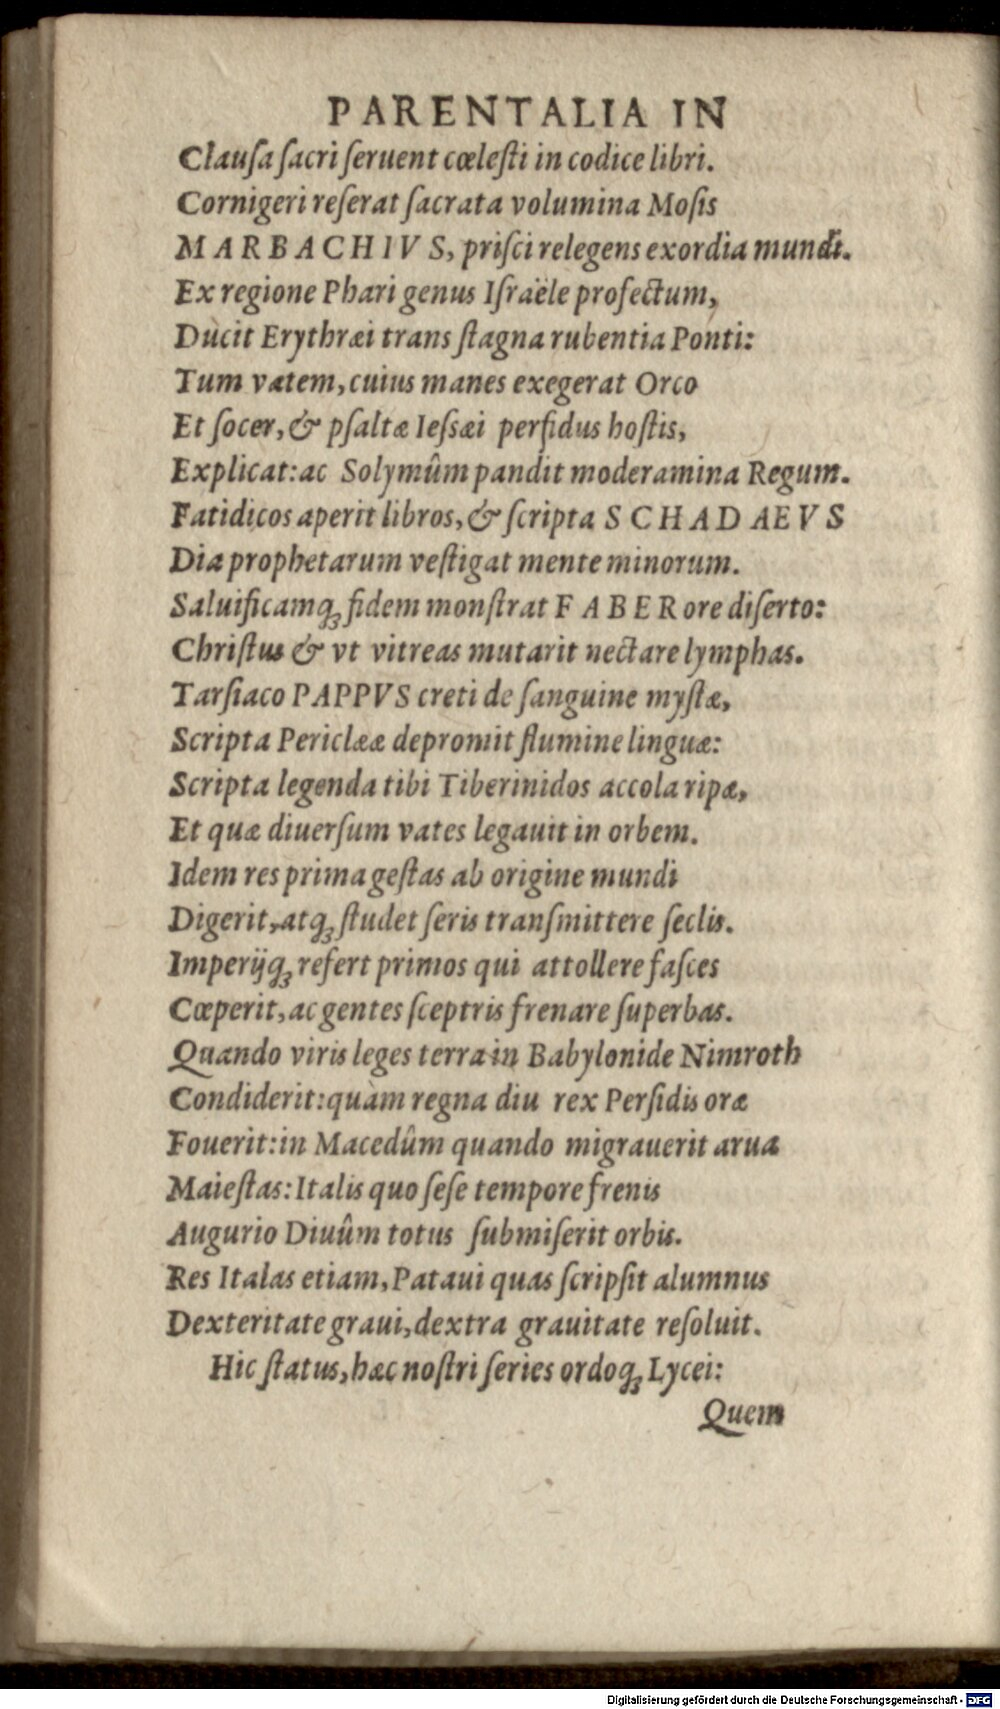 PARENTALIA IN
Clauſa ſacri ſeruent cœleſti in codice libri.
Cornigeri reſerat ſacrata volumina Moſis
MARBACHIVS, priſci relegens exordia mundi.
Ex regione Phari genus Iſraële profectum,
Ducit Erythræi trans ſtagna rubentia Ponti:
Tum vatem, cuius manes exegerat Orco
Et ſocer, & pſaltæ Ieſsæi perfidus hoſtis,
Explicat: ac Solymûm pandit moderamina Regum.
Fatidicos aperit libros, & ſcripta SCHADAEVS
Dia prophetarum veſtigat mente minorum.
Saluificamq́ꝫ fidem monſtrat FABER ore diſerto:
Chriſtus & vt vitreas mutarit nectare lymphas.
Tarſiaco PAPPVS creti de ſanguine myſtæ,
Scripta Periclææ depromit flumine linguæ:
Scripta legenda tibi Tiberinidos accola ripæ,
Et quæ diuerſum vates legauit in orbem.
Idem res prima geſtas ab origine mundi
Digerit, atq́ꝫ ſtudet ſeris tranſmittere ſeclis.
Imperijq́ꝫ refert primos qui attollere faſces
Cœperit, ac gentes ſceptris frenare ſuperbas.
Quando viris leges terra in Babylonide Nimroth
Condiderit: quàm regna diu rex Perſidis oræ
Fouerit: in Macedûm quando migrauerit arua
Maieſtas: Italis quo ſeſe tempore frenis
Augurio Diuûm totus ſubmiſerit orbis.
Res Italas etiam, Pataui quas ſcripſit alumnus
Dexteritate graui, dextra grauitate reſoluit.
Hic ſtatus, hæc noſtri ſeries ordoq́ꝫ Lycei:
Quem
Digitalisierung gefördert durch die Deutsche Forschungsgemeinschaft - DFG